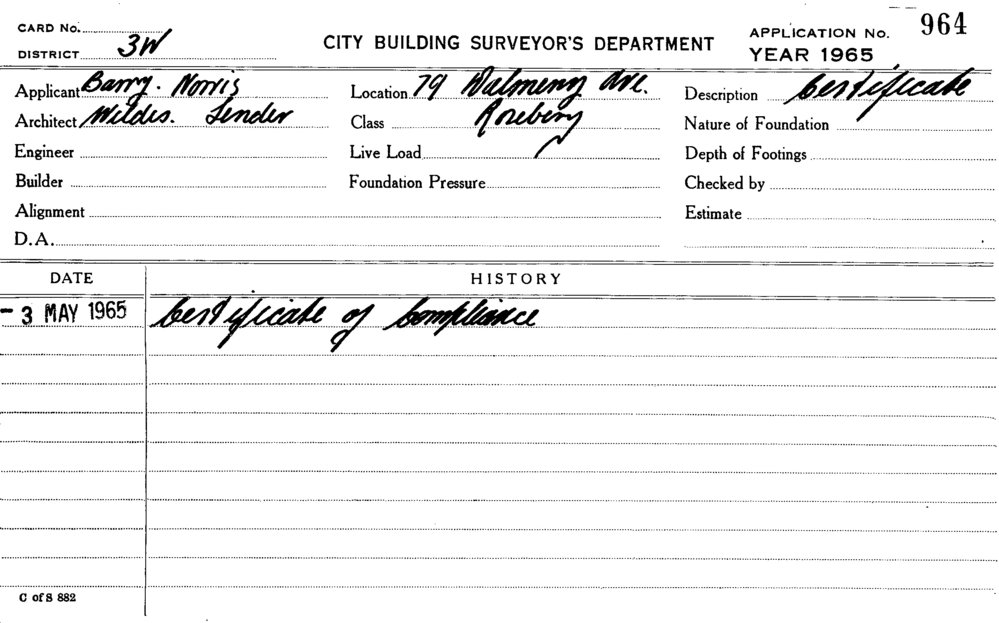 CARD No.
DISTRICT 3W
CITY BUILDING SURVEYOR'S DEPARTMENT
APPLICATION No. 964
YEAR 1965
Applicant Barry. Norris Location 79 Dalmeny Ave. Description Certificate
Architect Wildes. Lender Class Rosebery Nature of Foundation
Engineer Live Load Depth of Footings
Builder Foundation Pressure Checked by
Alignment Estimate
D.A.
DATE HISTORY
- 3 MAY 1965 Certificate of Compliance
C of S 882